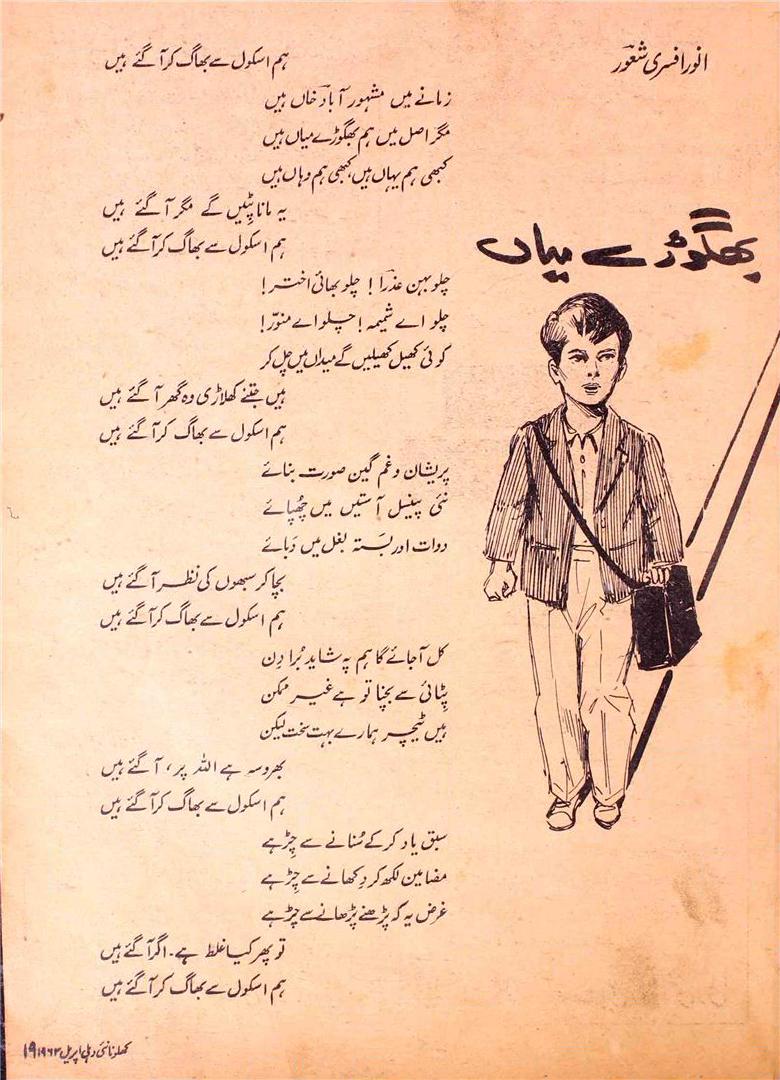 انور افسری شعورؔ
بھگوڑے میاں
ہم اسکول سے بھاگ کر آ گئے ہیں
زمانے میں مشہور آبادؔ خاں ہیں
مگر اصل میں ہم بھگوڑے میاں ہیں
کبھی ہم یہاں ہیں، کبھی ہم وہاں ہیں
یہ مانا پٹیں گے مگر آ گئے ہیں
ہم اسکول سے بھاگ کر آ گئے ہیں
چلو بہن عذرؔا! چلو بھائی اختر!
چلو اے شمیمہ! چلو اے منوّر!
کوئی کھیل کھیلیں گے میداں میں چل کر
ہیں جتنے کھلاڑی وہ گھر آ گئے ہیں
ہم اسکول سے بھاگ کر آ گئے ہیں
پریشان و غم گین صورت بنائے
نئی پینسل آستیں میں چھُپائے
دوات اور بَستہ بغل میں دَبائے
بچا کر سبھوں کی نظر آ گئے ہیں
ہم اسکول سے بھاگ کر آ گئے ہیں
کل آ جائے گا ہم پہ شاید بُرا دِن
پِٹائی سے بچنا تو ہے غیر ممکن
ہیں ٹیچر ہمارے بہت سخت لیکن
بھروسہ ہے اللہ پر، آ گئے ہیں
ہم اسکول سے بھاگ کر آ گئے ہیں
سبق یاد کر کے سُنانے سے چِڑ ہے
مضامین لکھ کر دِکھانے سے چِڑ ہے
غرض یہ کہ پڑھنے پڑھانے سے چِڑ ہے
تو پھر کیا غلط ہے۔ اگر آ گئے ہیں
ہم اسکول سے بھاگ کر آ گئے ہیں
کھلونا نئی دہلی اپریل ۱۹۶۲ ۱۹